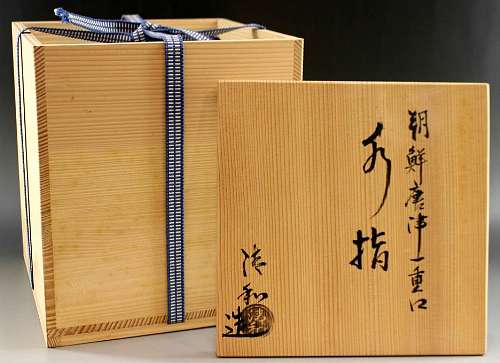 朝鮮唐津一重口
水指
清和造